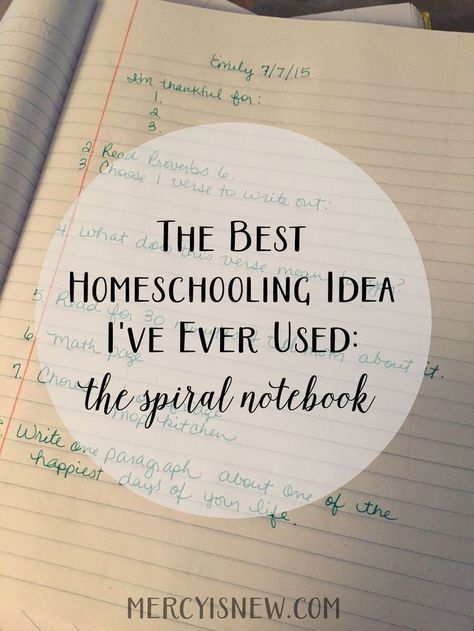 Emily 7/7/15
I'm thankful for:
1.
2.
3.
2. Read Proverbs 6.
3. Choose 1 verse to write out:
4. What does this verse mean
5. Read for 30 about it.
6. Math page
7.
mop kitchen
Write one paragraph about one of the
happiest days of your life.
The Best
Homeschooling Idea
I've Ever Used:
the spiral notebook
MERCYISNEW.COM